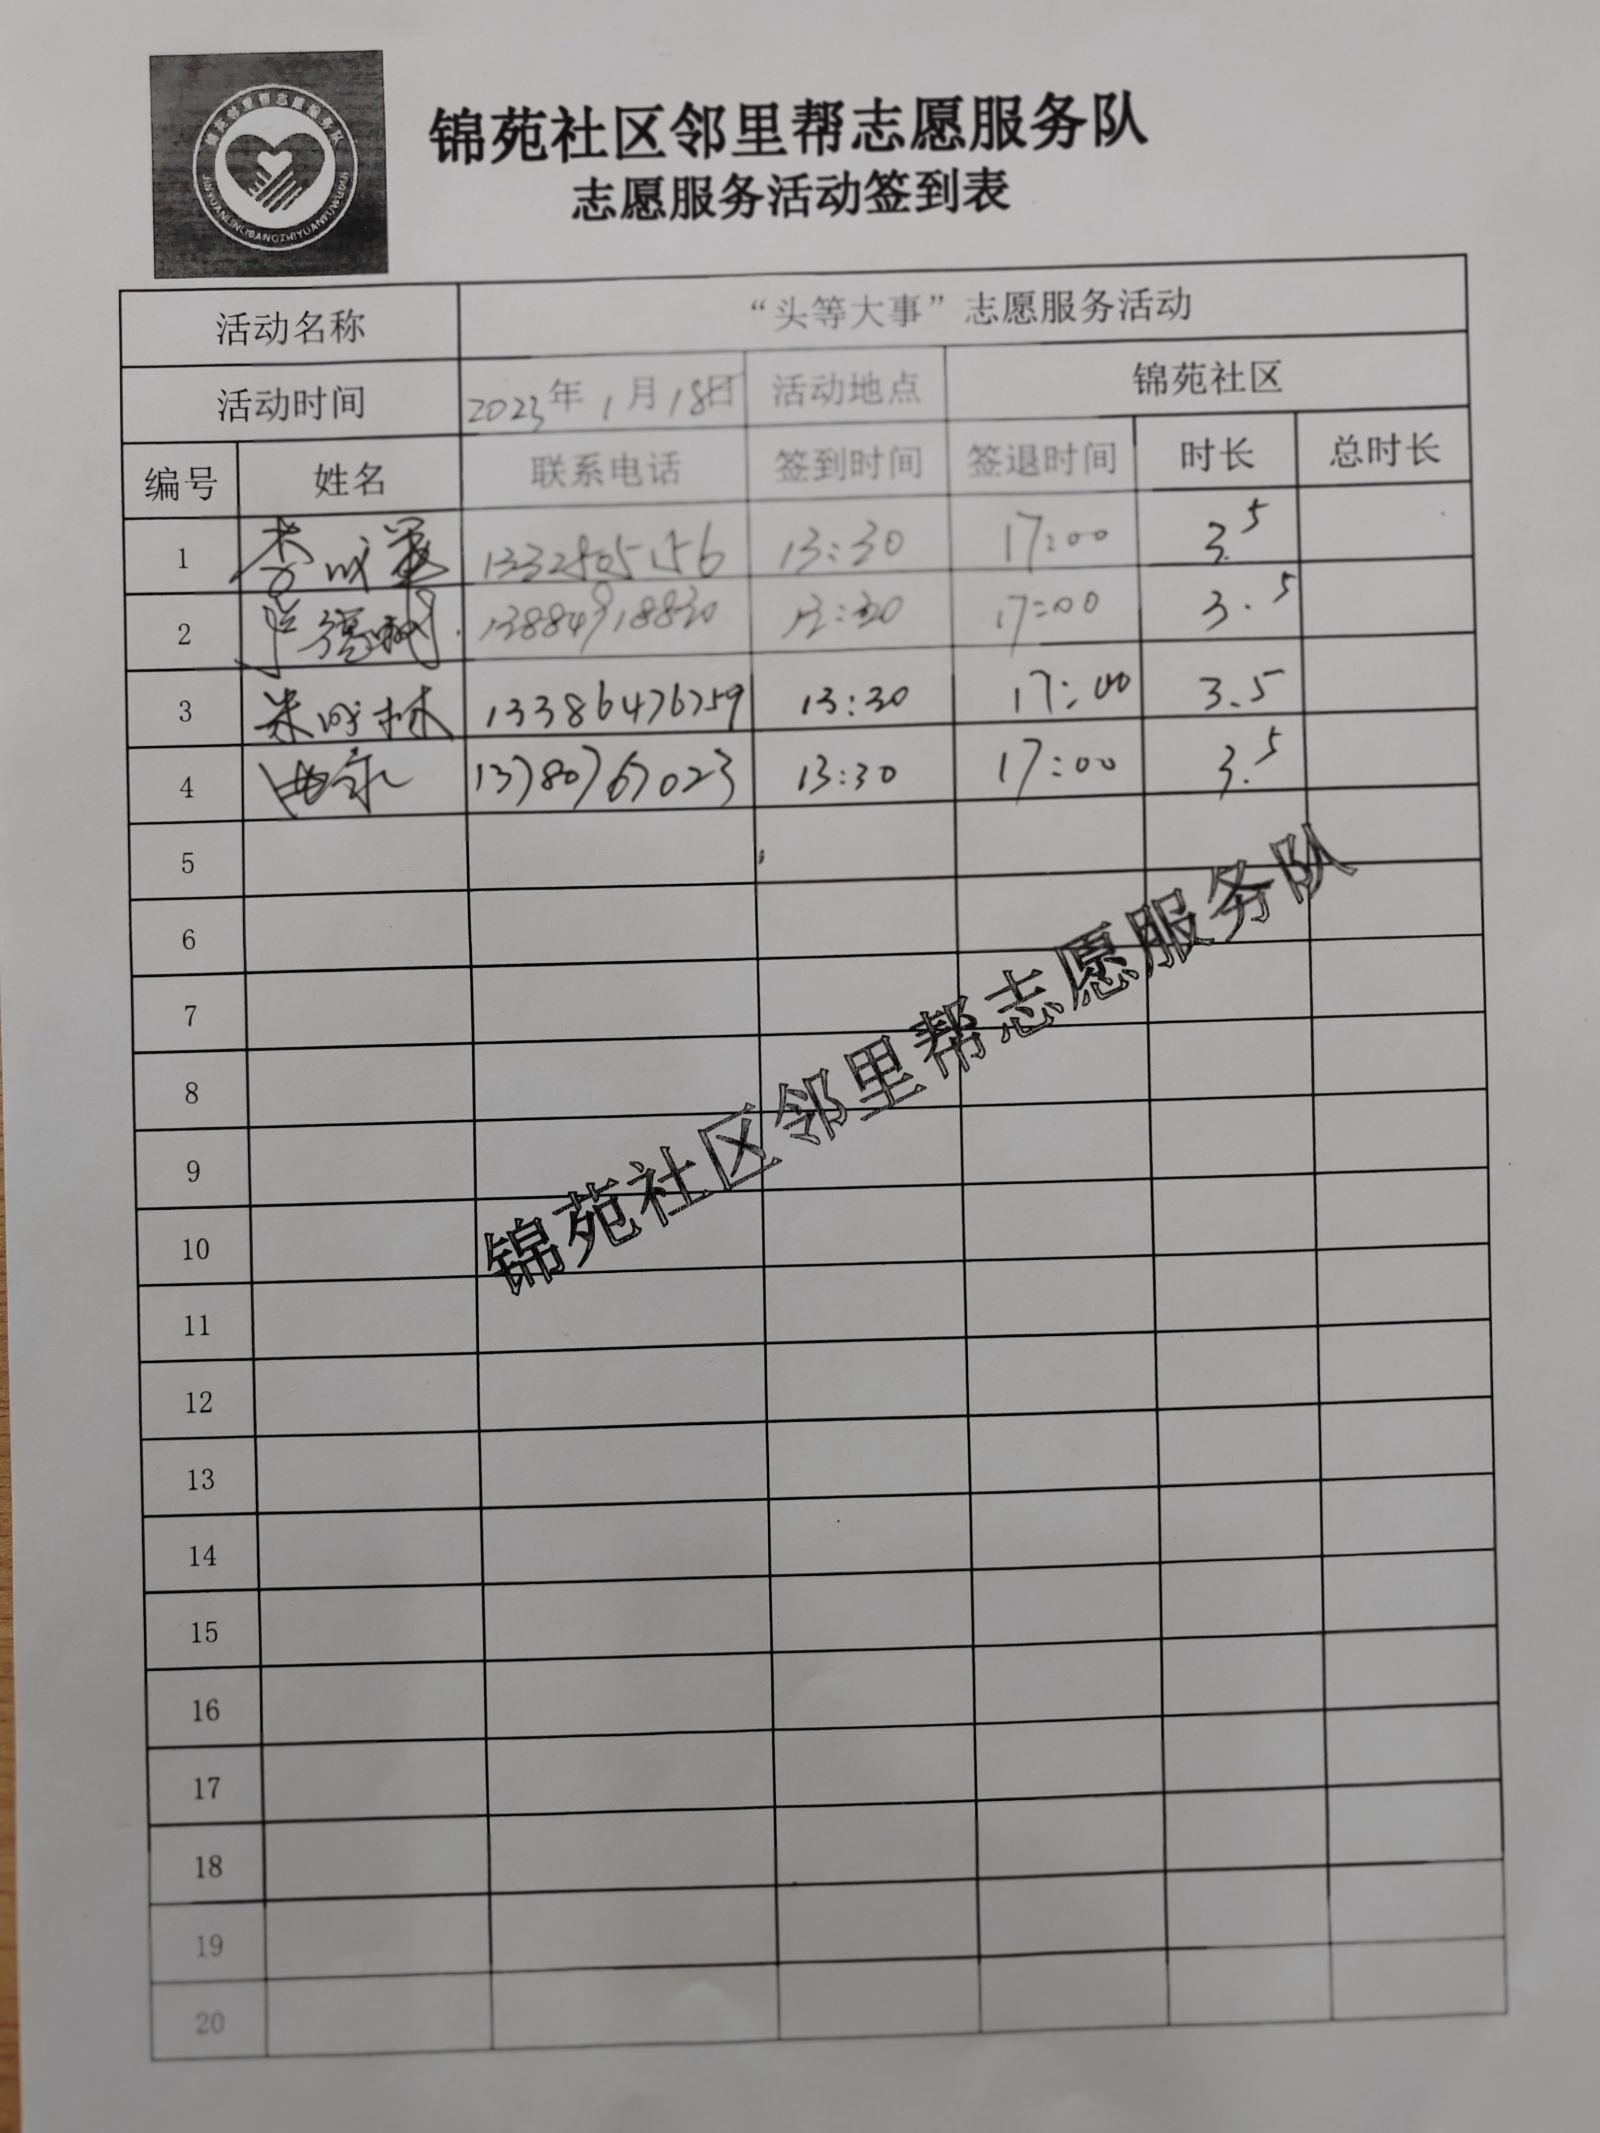 锦苑邻里帮志愿服务队
JINYUANLINLIBANGZHIYUANFUWUDUI
锦苑社区邻里帮志愿服务队
志愿服务活动签到表
活动名称 “头等大事”志愿服务活动
活动时间 2023年1月18日 活动地点 锦苑社区
编号 姓名 联系电话 签到时间 签退时间 时长 总时长
1 13:30 17:00 3.5
2 17:00 3.5
3 13386476759 13:30 17:00 3.5
4 13780767023 13:30 17:00 3.5
5
6
7
8
9
10
11
12
13
14
15
16
17
18
19
20
锦苑社区邻里帮志愿服务队